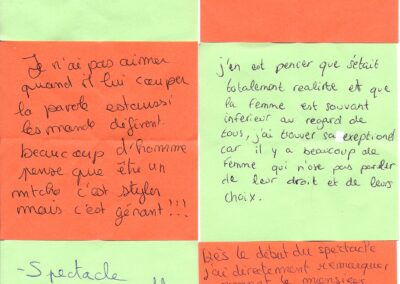 Je n'ai pas aimer
quand il lui couper
la parole
les monde différent
beaucoup d'homme
pense que être un
mtcho c'est stylers
mais c'est gênant!!!
j'en est pencer que s'était
totalement realiste et que
la femme est souvant
inferieur au regard de
tous, j'ai trouver sa exeptionel
car il y a beaucoup de
femme qui n'ose pas parler
de leur droit et de leurs
choix.
-Spectacle
Dès le debut du spectacle
j'ai directement remarquer
monsieur